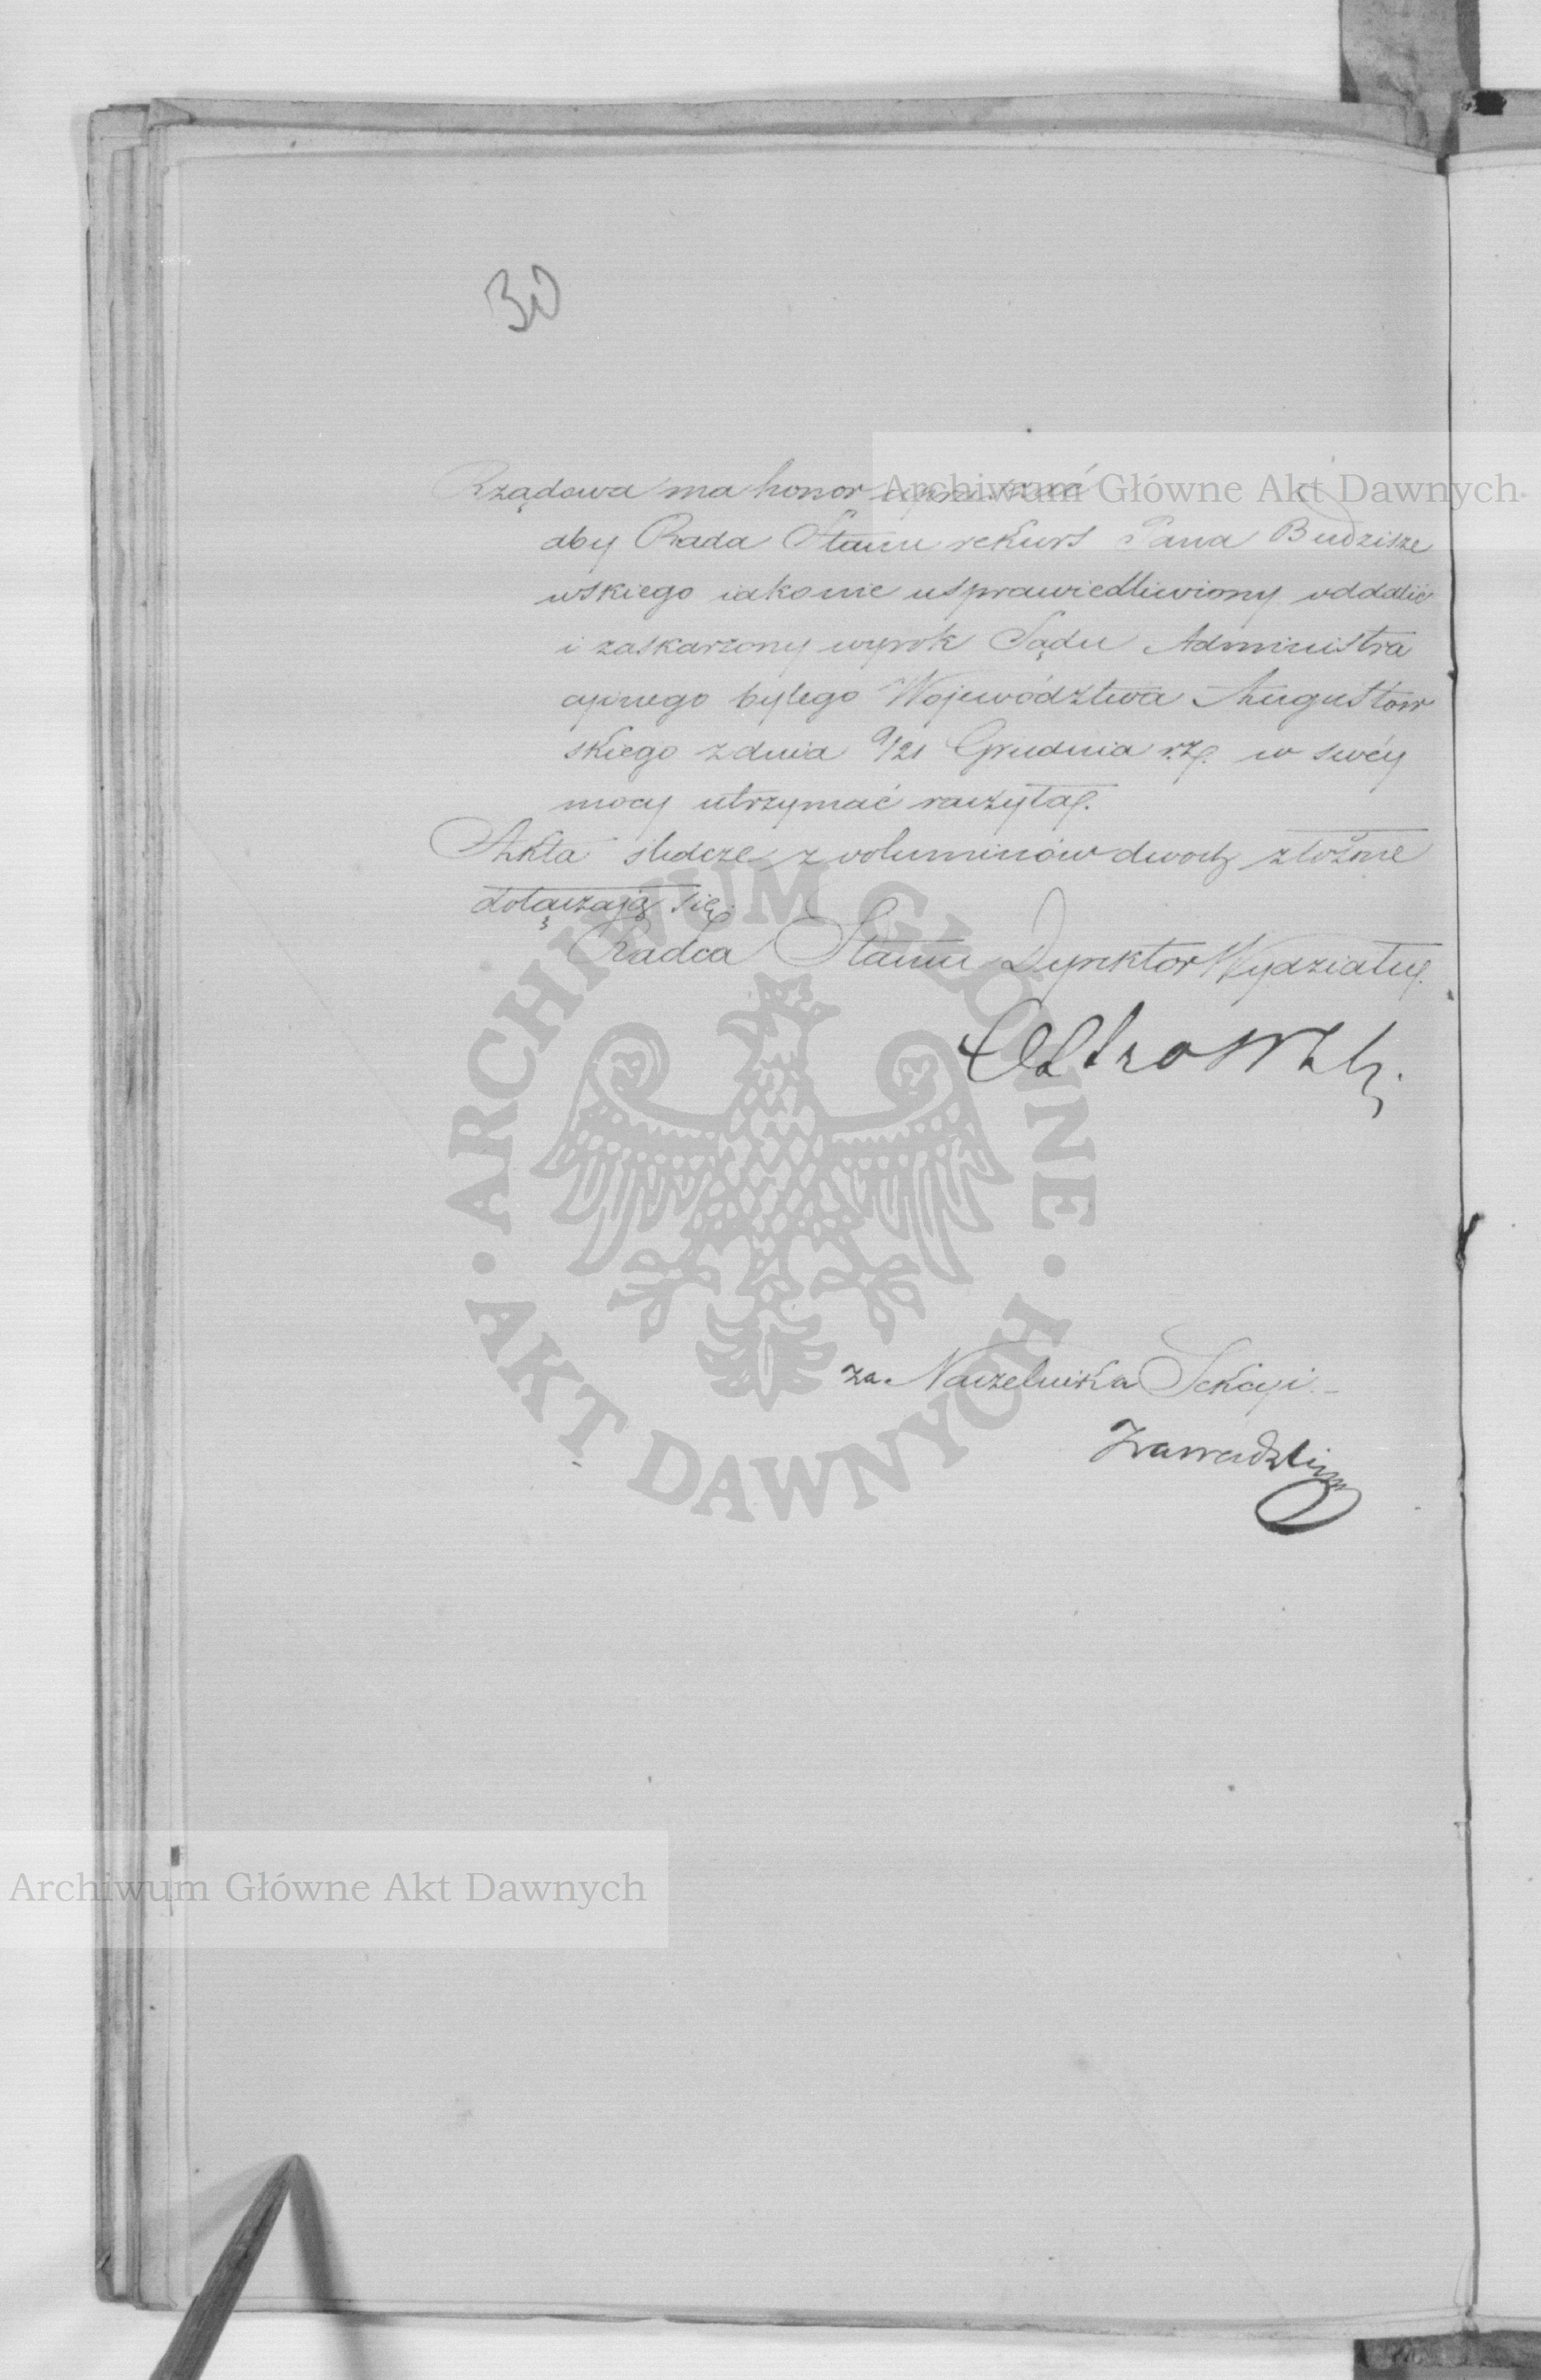 30
Archiwum Główne Akt Dawnych
Rządowa ma honor upraszać
aby Rada Stanu rekurs Pana Budzisze
wskiego iako nie usprawiedliwiony oddalić
i zaskarzony wyrok Sądu Administra
cyinego byłego Województwa Augustow
skiego z dnia 9/21 Grudnia r.z. w swéy
mocy utrzymać raczyła.
Akta śledcze z woluminów dwoch złożone
dołączają się.
Radca Stanu Dyrektor Wydziału
ARCHIWUM GŁÓWNE AKT DAWNYCH
za Naczelnika Sekcyi
Zawadzki
Archiwum Główne Akt Dawnych